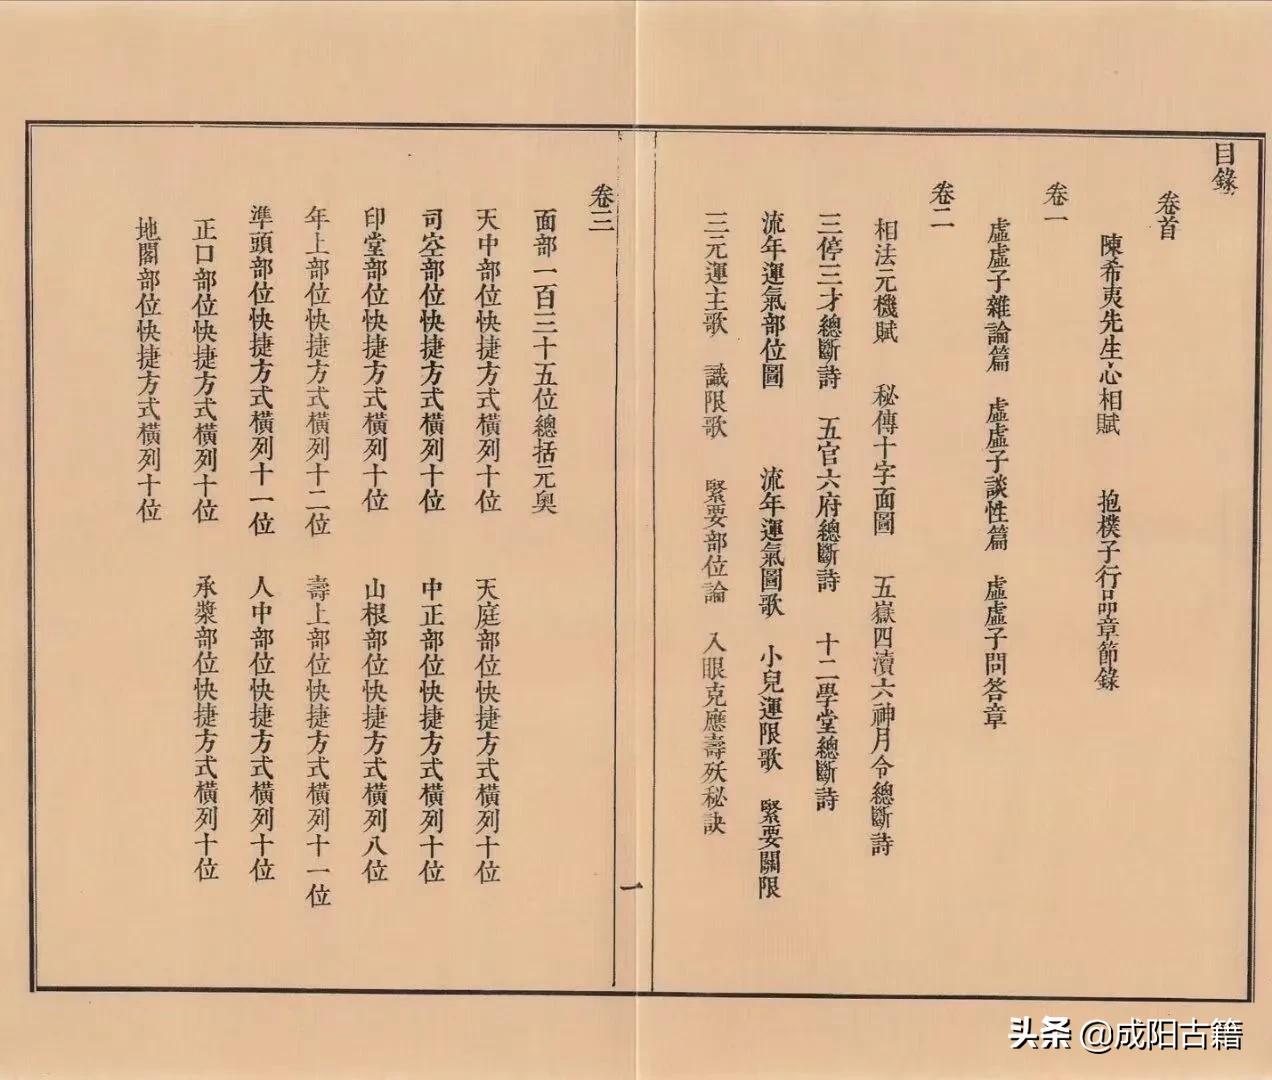 目錄
卷首
陳希夷先生心相賦　抱樸子行品章節錄
卷一
虛虛子雜論篇　虛虛子談性篇　虛虛子問答章
卷二
相法元機賦　秘傳十字面圖　五嶽四瀆六神月令總斷詩
三停三才總斷詩　五官六府總斷詩　十二學堂總斷詩
流年運氣部位圖　流年運氣圖歌　小兒運限歌　緊要關限
三元運主歌　識限歌　緊要部位論　入眼克應壽殀秘訣
一
卷三
面部一百三十五位總括元奧
天中部位快捷方式橫列十位　天庭部位快捷方式橫列十位
司空部位快捷方式橫列十位　中正部位快捷方式橫列十位
印堂部位快捷方式橫列十位　山根部位快捷方式橫列八位
年上部位快捷方式橫列十二位　壽上部位快捷方式橫列十一位
準頭部位快捷方式橫列十一位　人中部位快捷方式橫列十位
正口部位快捷方式橫列十位　承漿部位快捷方式橫列十位
地閣部位快捷方式橫列十位
头条 @成阳古籍